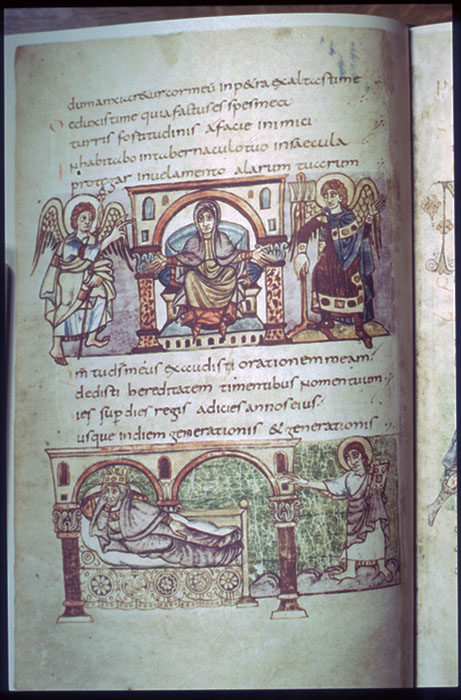 dum anxiaretur cor meū in petra exaltasti me
Deduxisti me quia factus es spes mea
turris fortitudinis a facie inimici
nhabitabo in tabernaculo tuo in saecula
protegar in velamento alarum tuarum
m̄ tu ds meus exaudisti orationem meam.
dedisti hereditatem timentibus nomen tuum
ies sup dies regis adicies annos eius.
usque in diem generationis & generationis